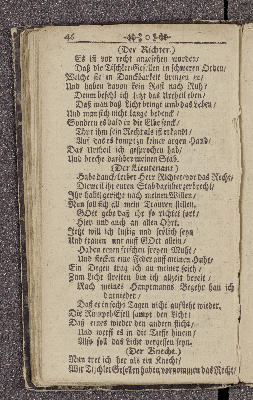 46
(Der Richter.)
Es ist vor recht angesehen worden/
Daß die Tischler-Gesellen in schweren Orden/
Welche sie in Danckbarkeit bringen
Und haben davon kein Rast noch Ruh/
Denn befehl ich jetzt das Urtheil eben/
Daß man doch Licht bringe umb das Leben/
Und man sich nicht lange bedenck/
Sondern es bald in die Elbe senck/
Thut ihm sein Recht als ist erkandt/
Auf das es kompt in keiner argen Hand/
Das Urtheil ich gesprochen hab/
Und breche darüber meinen Stab.
(Der Lieutenant.)
Habe danck/ lieber Herr Richter vor das Recht/
Dieweil ihr euren Stab darüber gerbrecht/
Ihr habt gericht nach meinen Willen/
Nun soll sich all mein Trauren stillen/
GOtt gebe daß ihr so richtet fort/
Hier und auch an allen Ort.
Jetzt will ich lustig und frölich seyn
Und trauen nur auff GOtt allein/
Haben einen freyen Muht/
Und stecken eine Feder auff meinen Huht/
Ein Degen trag ich an meiner seith/
Zum Licht streiten bin ich allzeit bereit/
Nach meines Hauptmanns Begehr hau ich
darnieder/
Daß er in sechs Tagen nicht auffsteht wieder.
Die Knüppel-Esell sampt den Licht/
Daß eines wieder den andern sticht/
Und werff es in die Tieffe hinein/
Also soll das Licht vergessen seyn.
(Der Knecht.)
Nun tret ich her als ein Knecht/
Wir Tischler Gesellen haben vorgenommen das Recht/